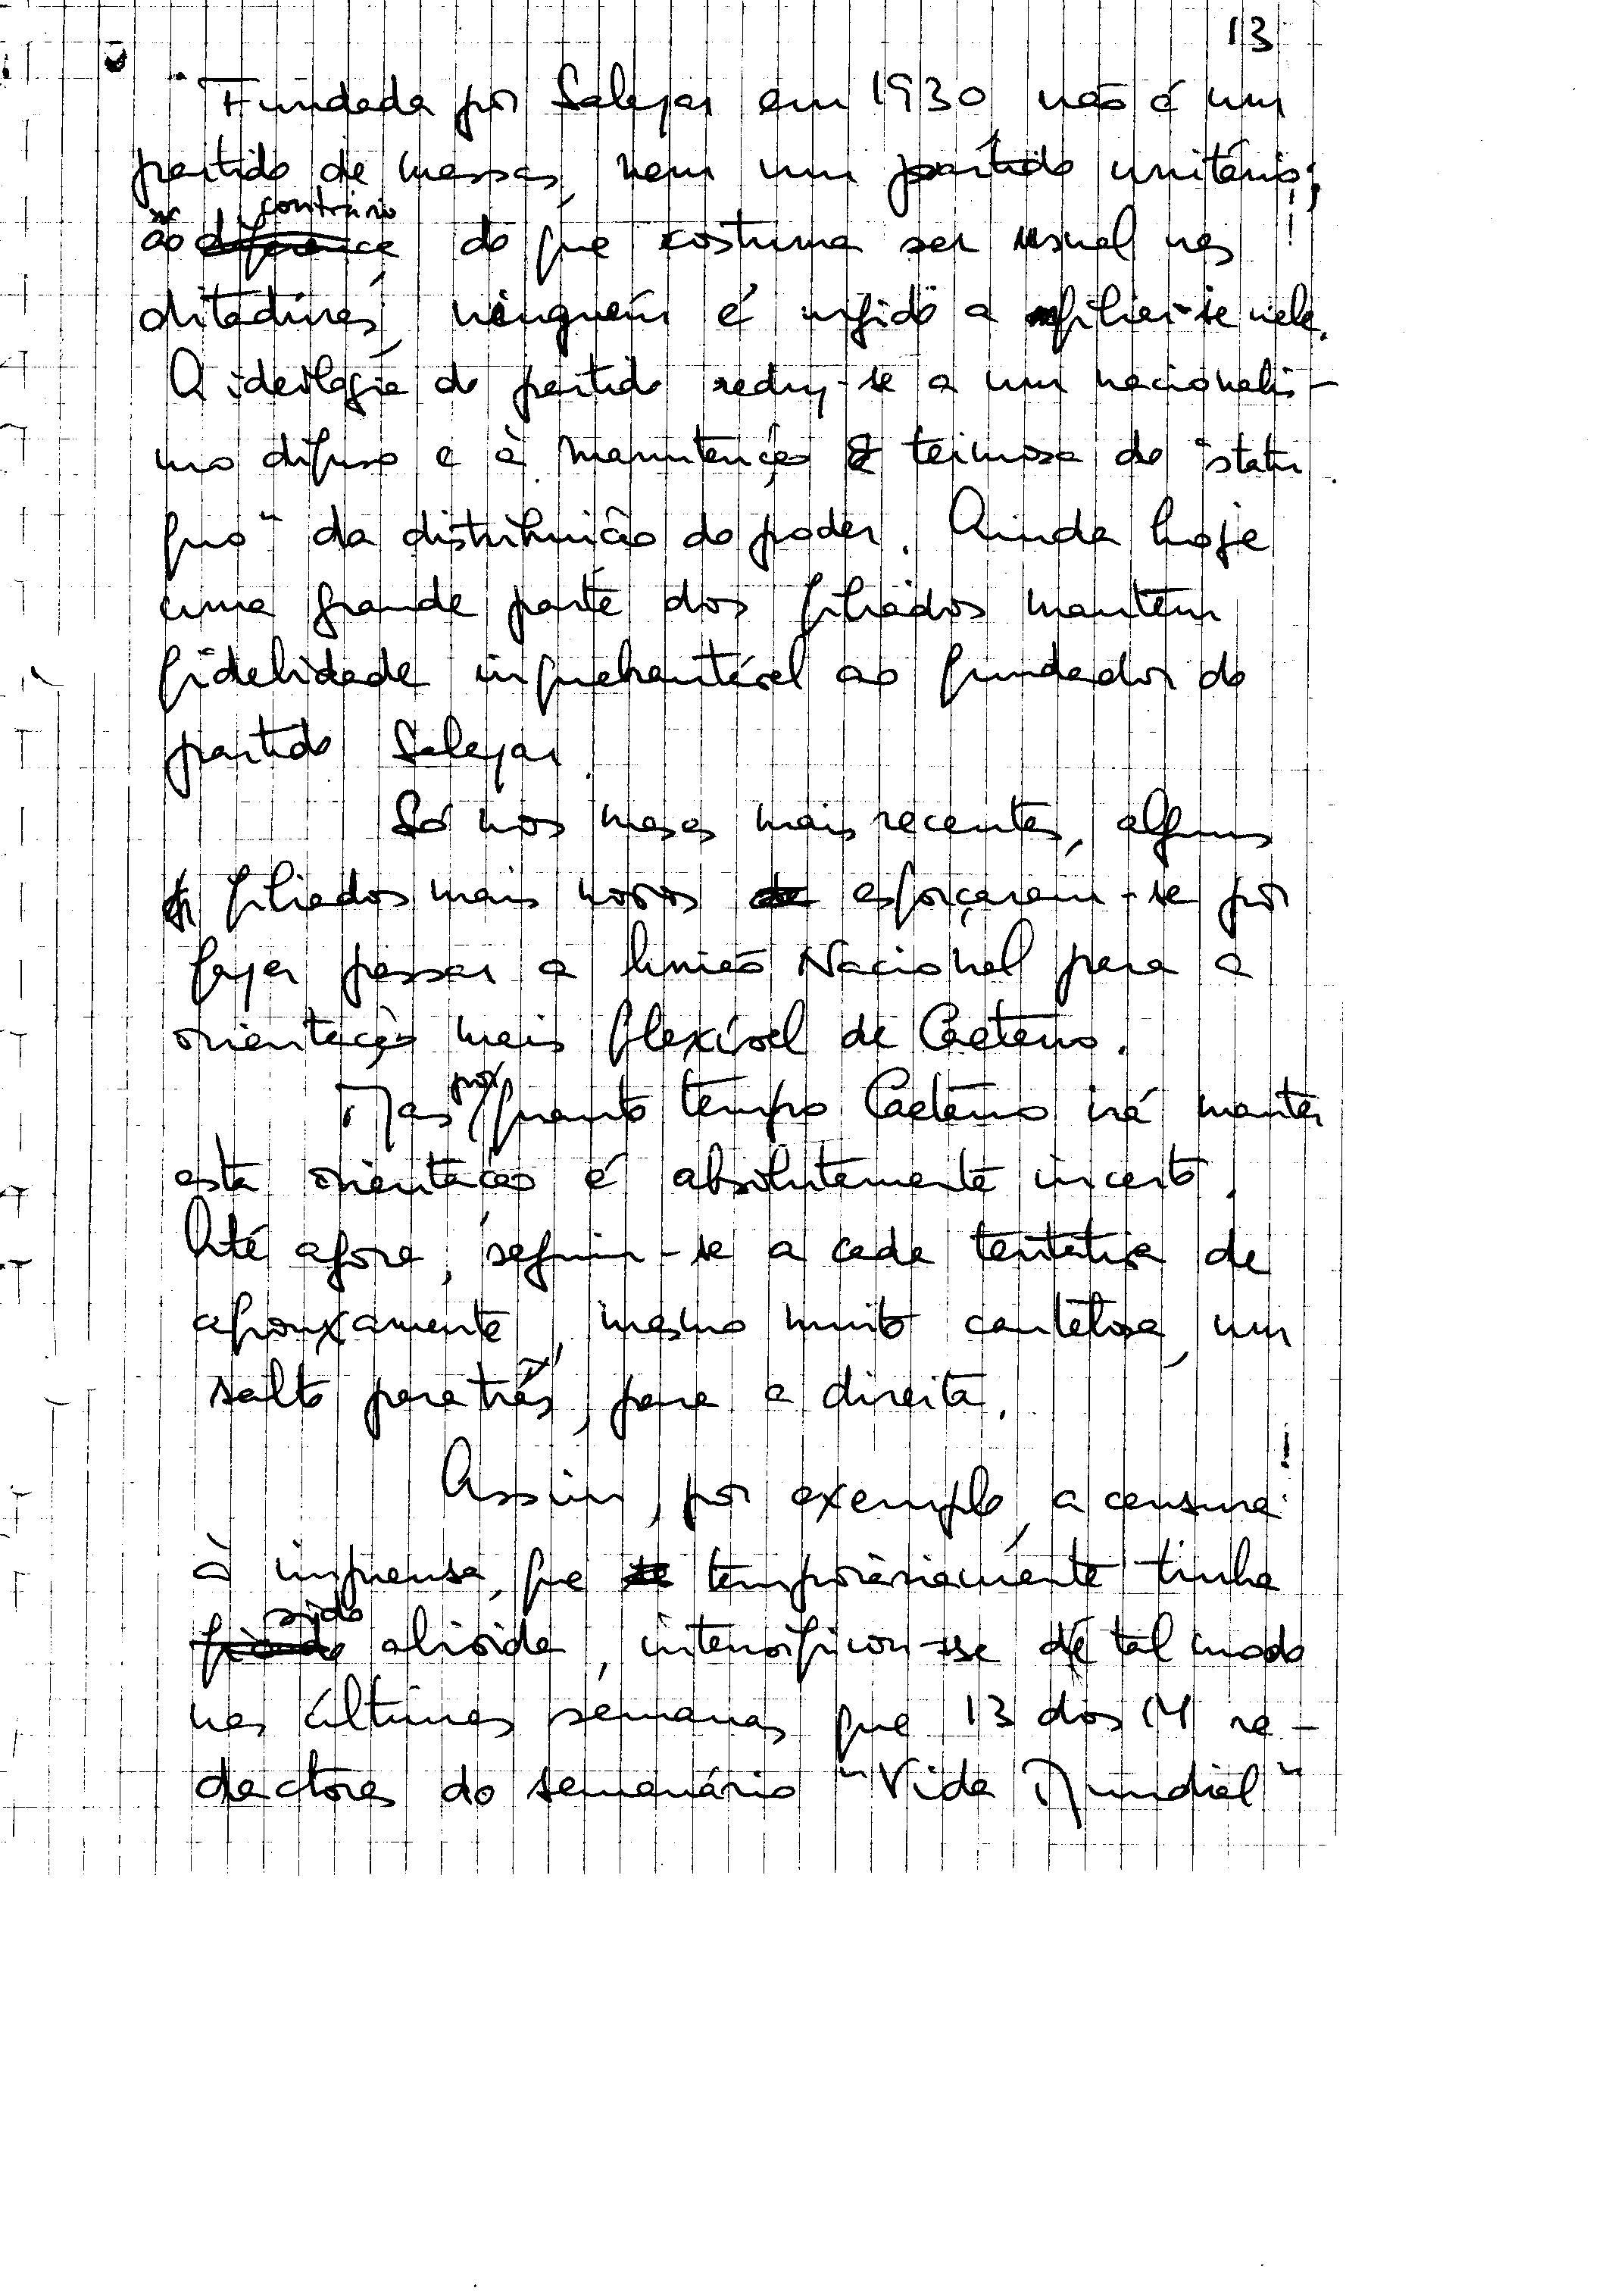 13
"Fundada por Salazar em 1930 não é um
partido de massas, nem um partido unitário;
ao contrário do que costuma ser usual nas
ditaduras, ninguém é urgido a filiar-se nele.
A ideologia do partido reduz-se a um nacionalis-
mo difuso e à manutenção teimosa do "statu
quo" da distribuição do poder. Ainda hoje
uma grande parte dos filiados mantêm
fidelidade inquebrantável ao fundador do
partido Salazar.
Só nos meses mais recentes, alguns
filiados mais novos esforçaram-se por
fazer passar a União Nacional para a
orientação mais flexível de Caetano.
Mas por quanto tempo Caetano irá manter
esta orientação é absolutamente incerto.
Até agora, seguiu-se a cada tentativa de
afrouxamente, mesmo muito cautelosa, um
salto para trás, para a direita.
Assim, por exemplo, a censura
à imprensa, que temporàriamente tinha
sido aliviada, intensificou-se de tal modo
nas últimas semanas que 13 dos 14 re-
dactores do semanário "Vida Mundial"